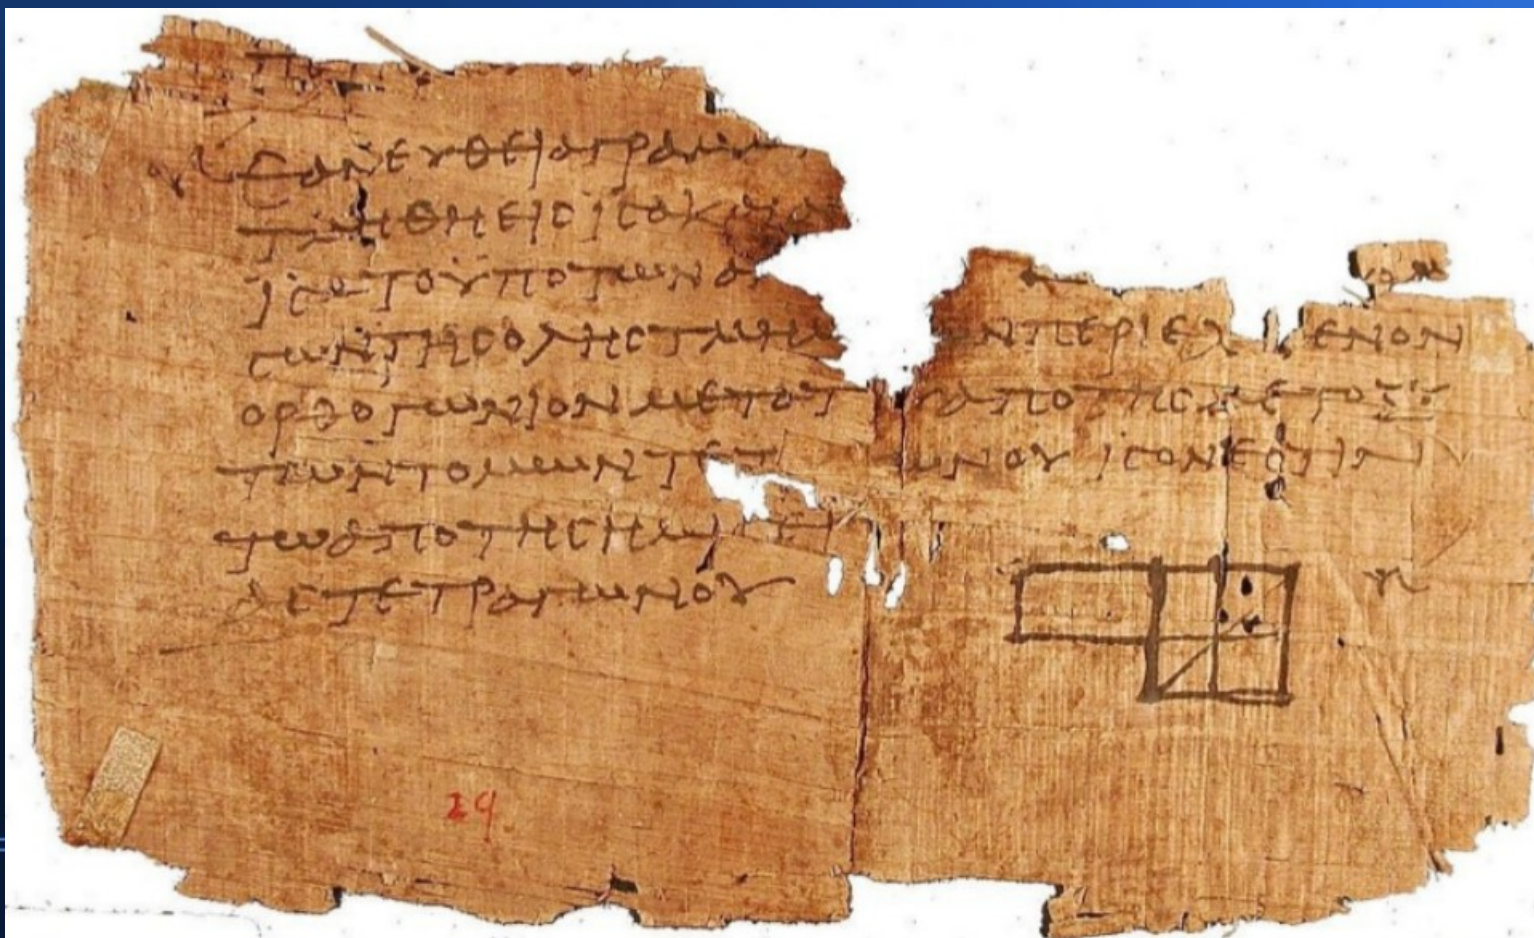 ΕΑΝ ΕΥΘΕΙΑ ΓΡΑΜΜ
ΤΜΗΘΗ ΕΙΣ ΙΣΑ ΚΑΙ ΑΝ
ΙΣΑ ΤΟ ΥΠΟ ΤΩΝ ΑΝ
ΣΩΝ ΤΗΣ ΟΛΗΣ ΤΜΗΜ ΩΝ ΠΕΡΙΕΧ ΕΝΟΝ
ΟΡΘΟΓΩΝΙΟΝ ΜΕΤΑ ΤΟΥ ΑΠΟ ΤΗΣ ΜΕΤΟΞΥ
ΤΩΝ ΤΟΜΩΝ ΤΕΤ ΩΝΟΥ ΙΣΟΝ ΕΣΤΙΝ
ΤΩ ΑΠΟ ΤΗΣ ΗΜΙΣΕΙ
ΑΣ ΤΕΤΡΑΓΩΝΟΥ
29